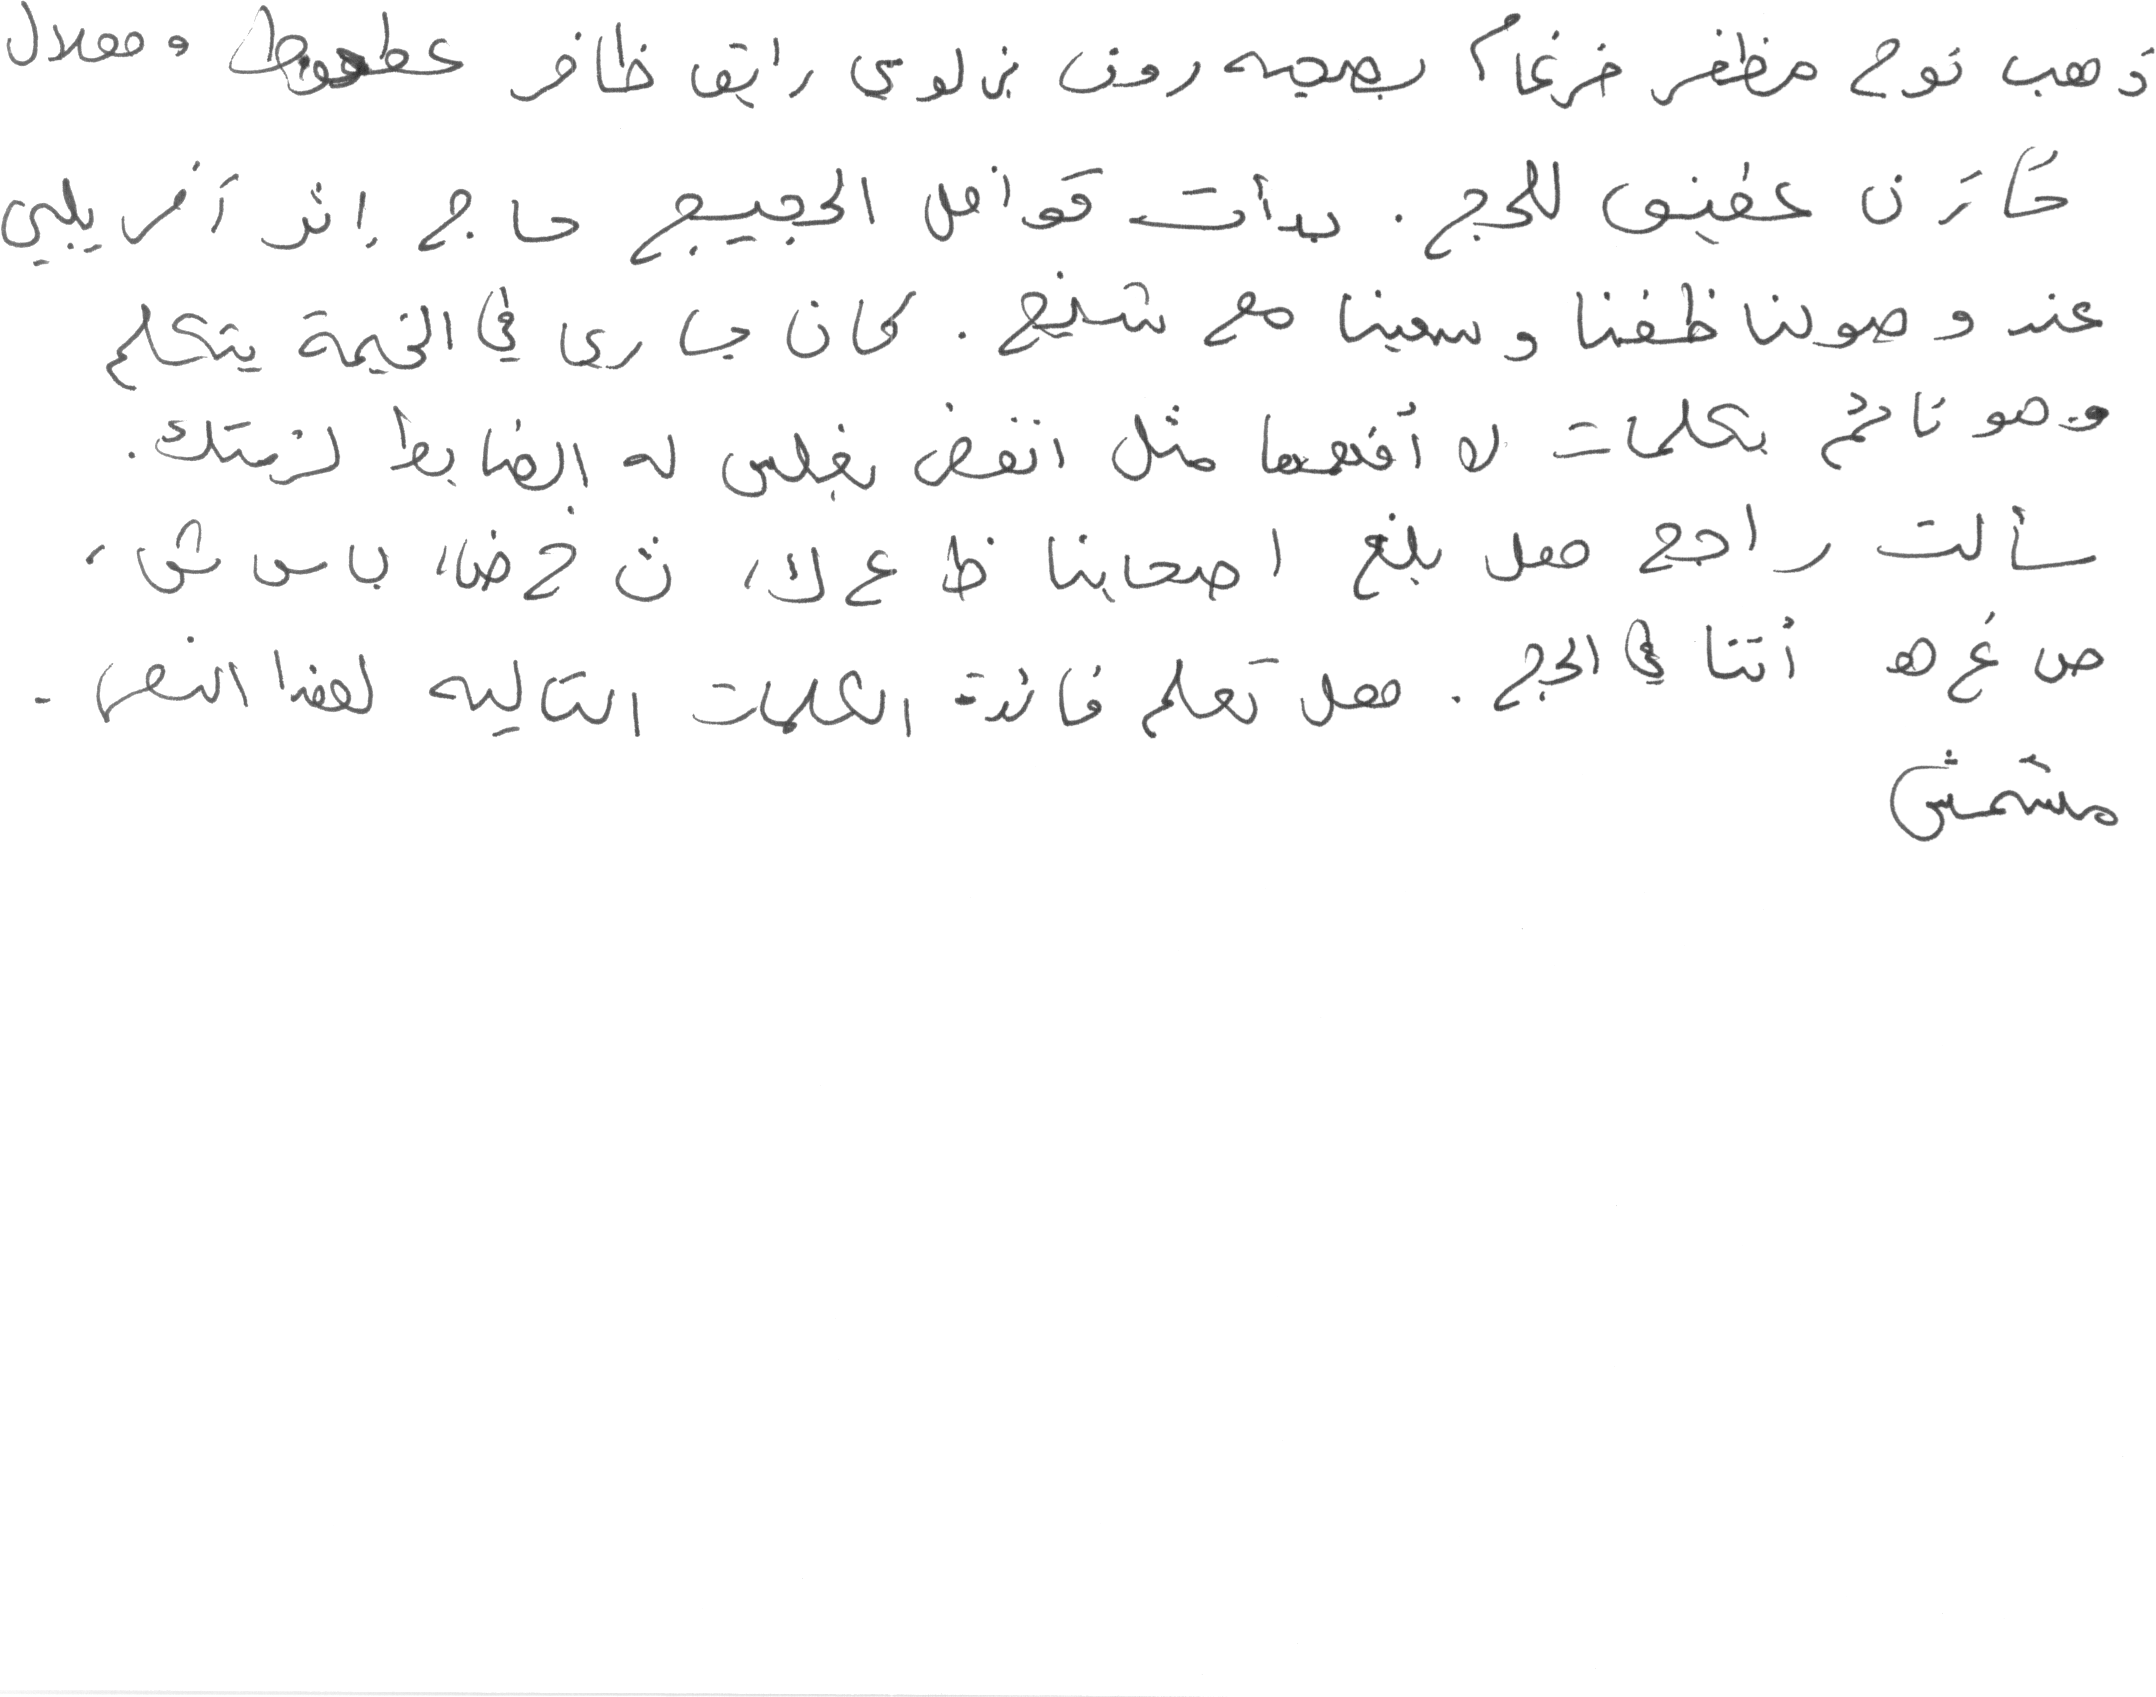 ذهب نوح مظفر ضرغام بصحبه رؤف بن لؤي رابق ظافر عطعوط و هلال
حازن عفيفى للحج . بدأت قوافل الحجيج حاج إثر آخر يلبي
عند وصولنا طفنا وسعينا مع شيخ . كان جارى في الخيمة يتكلم
وهو نائم بكلمات لا أفهمها مثل انفض بغلس له الضابط لزمتك .
سألت راجح هل بلغ اصحابنا ظ ع ك، ن خ ض، ب س ش،
ص غ ه أتتا في الحج . هل تعلم فائدة الكلمات التاليه لهذا النص .
مشمش